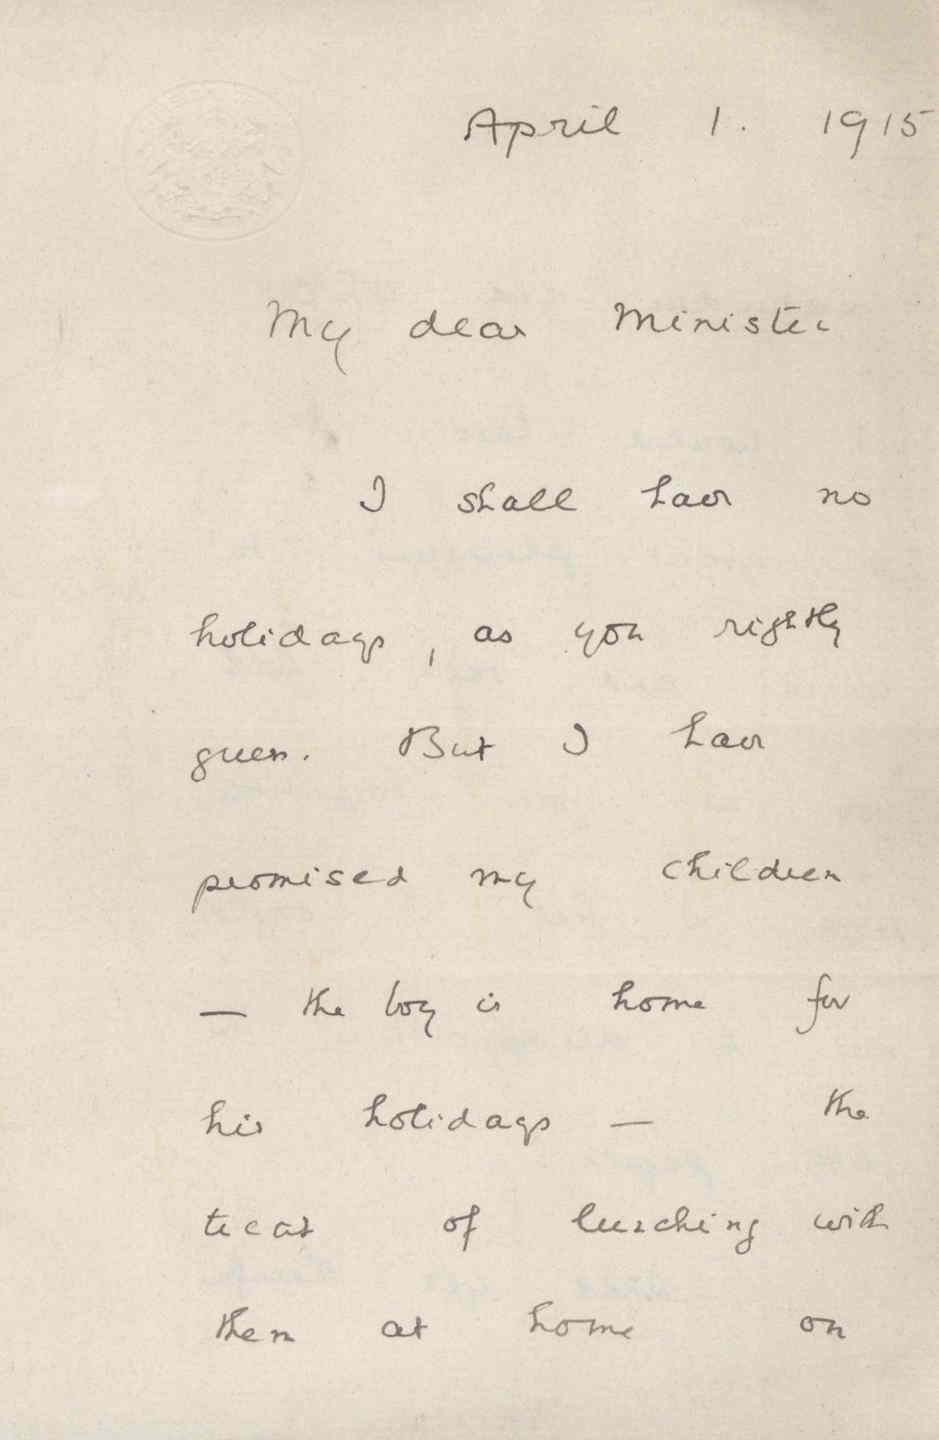 April 1. 1915
My dear Minister
I shall have no
holidays, as you rightly
guess. But I have
promised my children
— the boy is home for
his holidays — the
treat of lunching with
them at home on